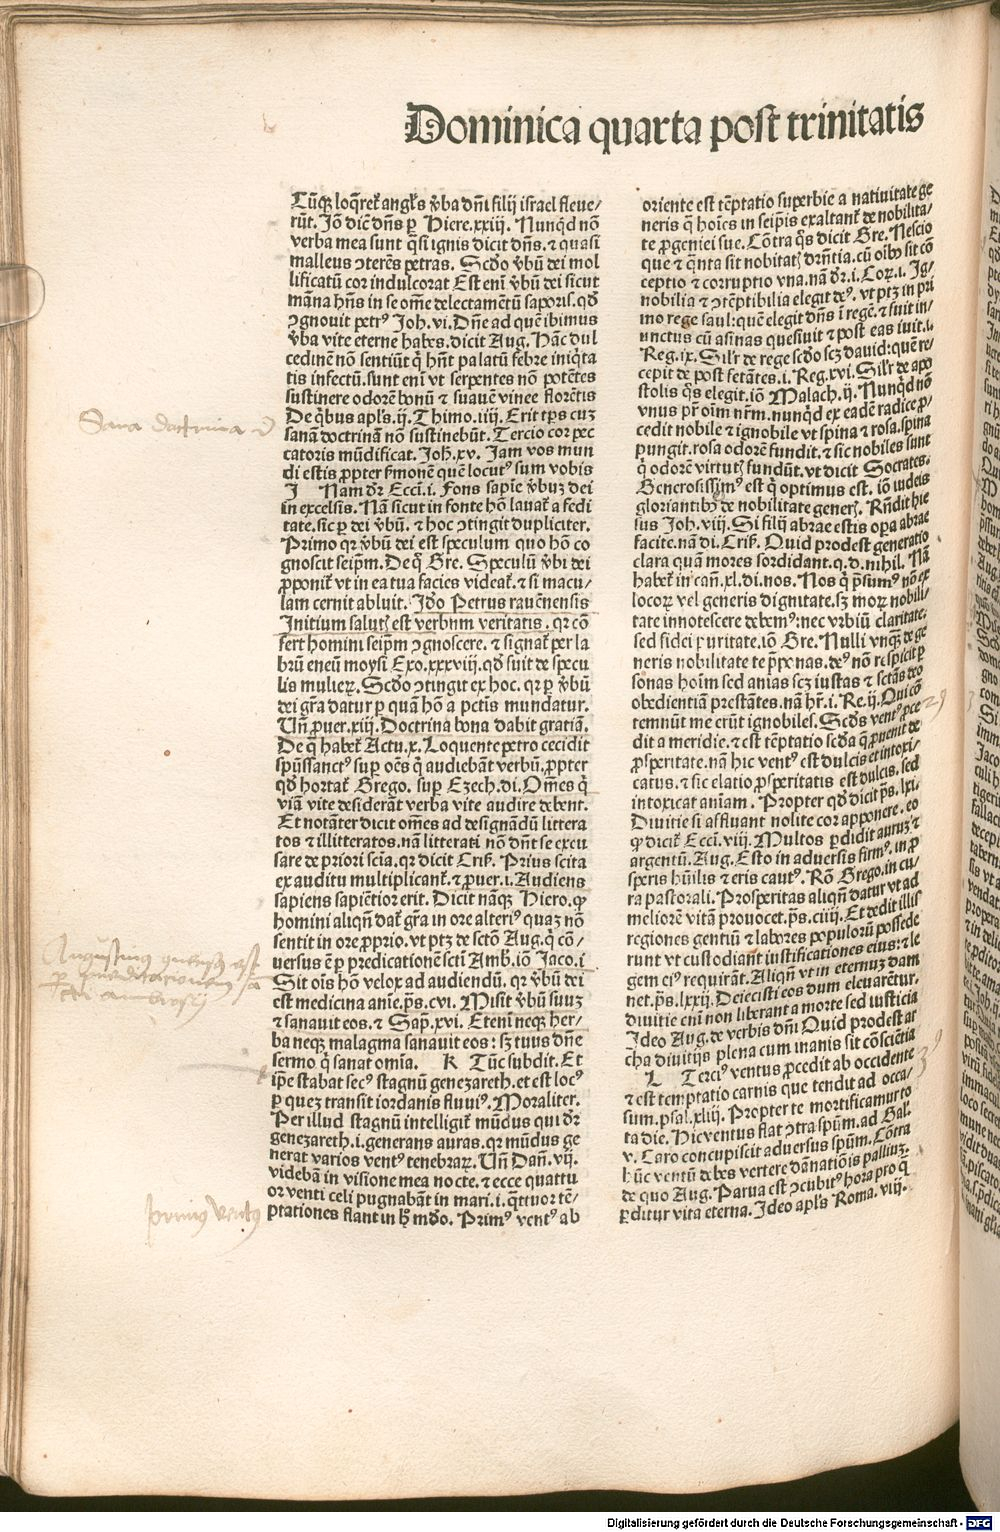 Dominica quarta post trinitatis
Tūqꝫ loq̄reť angƚs v̓ba dn̄i filij israel fleue/
rūt. Jō dic̄ dn̄s ꝑ Hiere.xxiij. Nunqͥd nō
verba mea sunt q̄si ignis dicit dn̄s. ⁊ quasi
malleus ꝯterēs petras. Scd̓o v̓bū dei mol
lificatū cor indulcorat Est eni v̓bū dei sicut
māna hn̄s in se om̄e delectamētū saporis. qd̓
ꝯgnouit petrꝰ Joh.vi. Dn̄e ad quē ibimus
v̓ba vite eterne habes. dicit Aug. Hāc dul
cedinē nō sentiūt q̄ hn̄t palatū febre iniq̄ta
tis infectū. sunt eni vt serpentes nō potētes
sustinere odorē bonū ⁊ suauē vinee florētis
De qͥbus apƚs .ij. Thimo.iiij. Erit tp̄s cuꝫ
sanā doctrinā nō sustinebūt. Tercio cor pec
catoris mūdificat. Joh.xv. Jam vos mun
di estis ꝓpter ẜmonē quē locutꝰ sum vobis
J Nam d̓r Ecci.i. Fons sapīe v̓buꝫ dei
in excelsis. Nā sicut in fonte hō lauať a fedi
tate. sic ꝑ dei v̓bū. ⁊ hoc ꝯtingit dupliciter.
Primo qꝛ v̓bū dei est speculum quo hō co
gnoscit seip̄m. De q̄ Gre. Speculū v̓bi dei
ꝓponiť vt in ea tua facies videať. ⁊ si macu/
lam cernit abluit. Jd̓o Petrus rauēnensis
Initium saluť est verbum veritatis. qꝛ cō
fert homini seip̄m ꝯgnoscere. ⁊ signať per la
brū eneū moysi Exo.xxxviij. qd̓ fuit de specu
lis mulieꝝ. Scd̓o ꝯtingit ex hoc. qꝛ ꝑ v̓bū
dei gr̄a datur ꝑ quā hō a pctīs mundatur.
Un̄ ꝓuer.xiij. Doctrina bona dabit gratiā.
De q̄ habeť Actu.x. Loquente petro cecidit
spūssanctꝰ suꝑ oēs q̄ audiebāt verbū. ꝓpter
qd̓ hortať Grego. suꝑ Ezech.di. Om̄es q̄
viā vite desiderāt verba vite audire debent.
Et notāter dicit om̄es ad designādū littera
tos ⁊ illitteratos. nā litterati nō dn̄t se excu
sare de priori scīa. qꝛ dicit Criẜ. Prius scita
ex auditu multiplicanť. ⁊ ꝓuer.i. Audiens
sapiens sapiētior erit. Dicit nāqꝫ Hiero. qꝙ
homini aliqn̄ dať gr̄a in ore alteriꝰ quaꝫ nō
sentit in ore ꝓprio. vt ptꝫ de sctō Aug. q̄ cō/
uersus ē ꝑ predicationē scti Amb. iō Jaco.i
Sit oīs hō velox ad audiendū. qꝛ v̓bū dei
est medicina aīe. ps̄.cvi. Misit v̓bū suuꝫ
⁊ sanauit eos. ⁊ Sap̄.xvi. Eteni neqꝫ her/
ba neqꝫ malagma sanauit eos : sꝫ tuus dn̄e
sermo q̄ sanat omīa. K Tūc subdit. Et
ip̄e stabat secꝰ stagnū genezareth. et est locꝰ
ꝑ queꝫ transit iordanis fluuiꝰ. Moraliter.
Per illud stagnū intelligiť mūdus qui d̓r
genezareth.i. generans auras. qꝛ mūdus ge
nerat varios ventꝰ tenebraꝝ. Un̄ Dan̄.vij.
videbā in visione mea nocte. ⁊ ecce quattu
or venti celi pugnabāt in mari.i. q̄ttuor tē/
ptationes flant in h̓ mūdo. Primꝰ ventꝰ ab
oriente est tēptatio superbie a natiuitate ge
neris q̄ hoīes in seip̄is exaltanť de nobilita/
te ꝓgeniei sue. Cōtra qͥs dicit Gre. Nescio
que ⁊ q̄nta sit nobitať dr̄ntia. cū oib̓ sit cō
ceptio ⁊ corruptio vna. nā d̓r .i. Coꝝ.i. Ig/
nobilia ⁊ ꝯtēptibilia elegit deꝰ. vt ptꝫ in pri
mo rege saul: quē elegit dn̄s ī regē. ⁊ fuit in/
unctus cū asinas quesiuit ⁊ post eas iuit. i.
Reg.ix. Siƚ'r de rege scd̓o scꝫ dauid: quē re/
cepit de post fetātes .i. Reg.xvi. Siƚ'r de apo
stolis qͥs elegit. iō Malach.ij. Nunqͥd nō
vnus pr̄ oīm nr̄m. nunqͥd ex eadē radice ꝓ/
cedit nobile ⁊ ignobile vt spina ⁊ rosa. spina
pungit. rosa odorē fundit. ⁊ sic nobiles sunt
q̄ odorē virtuť fundūt. vt dicit Socrates.
Generosissimꝰ est q̄ optimus est. iō iudeis
gloriantib̓ de nobilitate geneř. Rn̄dit hie
sus Joh.viij. Si filij abrae estis oꝑa abrae
facite. nā di. Criẜ. Quid prodest generatio
clara quā mores sordidant. q.d. nihil. Nā
habeť in can̄.xl.di.nos. Nos q̄ p̄sumꝰ nō ex
locoꝝ vel generis dignitate. sꝫ moꝝ nobili/
tate innotescere debemꝰ: nec vrbiū claritate.
sed fidei puritate. iō Gre. Nulli vnqꝫ de ge
neris nobilitate te p̄ponas. deꝰ nō respicit ꝑ
sonas hoīm sed anīas scꝫ iustas ⁊ sctās deo
obedientiā prestātes. nā hr̄.i. Re.ij. Qui cō
temnūt me erūt ignobiles. Scd̓s ventꝰ ꝓce
dit a meridie. ⁊ est tēptatio scd̓a q̄ ꝓuenit de
ꝓsperitate. nā hic ventꝰ est dulcis et intoxi/
catus. ⁊ sic elatio ꝓsperitatis est dulcis. sed
intoxicat animā. Propter qd̓ dicit ps̄.lxi.
Diuitie si affluant nolite cor apponere. eo
ꝙ diciť Ecci.viij. Multos ꝑdidit auruꝫ ⁊
argentū. Aug. Esto in aduersis firmꝰ. in ꝓ
speris hūilis ⁊ eris cautꝰ. Rō Grego. in cu/
ra pastorali. Prosperitas aliqn̄ datur vt ad
meliorē vitā prouocet. ps̄.ciiij. Et dedit illis
regiones gentiū ⁊ labores populorū possede
runt vt custodiant iustificationes eius: ⁊ le
gem eiꝰ requirāt. Aliqn̄ vt in eternuꝫ dam
net. ps̄.lxxij. Deiecisti eos dum eleuarētur.
diuitie eni non liberant a morte sed iusticia
Ideo Aug. de verbis dn̄i Quid prodest ar
cha diuitijs plena cum inanis sit cōsciētia
L Terciꝰ ventus ꝓcedit ab occidente
⁊ est temptatio carnis que tendit ad occa/
sum. psal.xliij. Propter te mortificamur to
ta die. Hic ventus flat ꝯtra spūm. ad Gal.
v. Caro concupiscit aduersus spūm. Cōtra
hūc ventū debes vertere dānatiōis palliuꝫ.
de quo Aug. Parua est ꝯcubitꝰ hora pro q̄
ꝑditur vita eterna. Ideo apƚs Roma.viij.
Sana doctrina
primꝰ ventꝰ
Digitalisierung gefördert durch die Deutsche Forschungsgemeinschaft - DFG